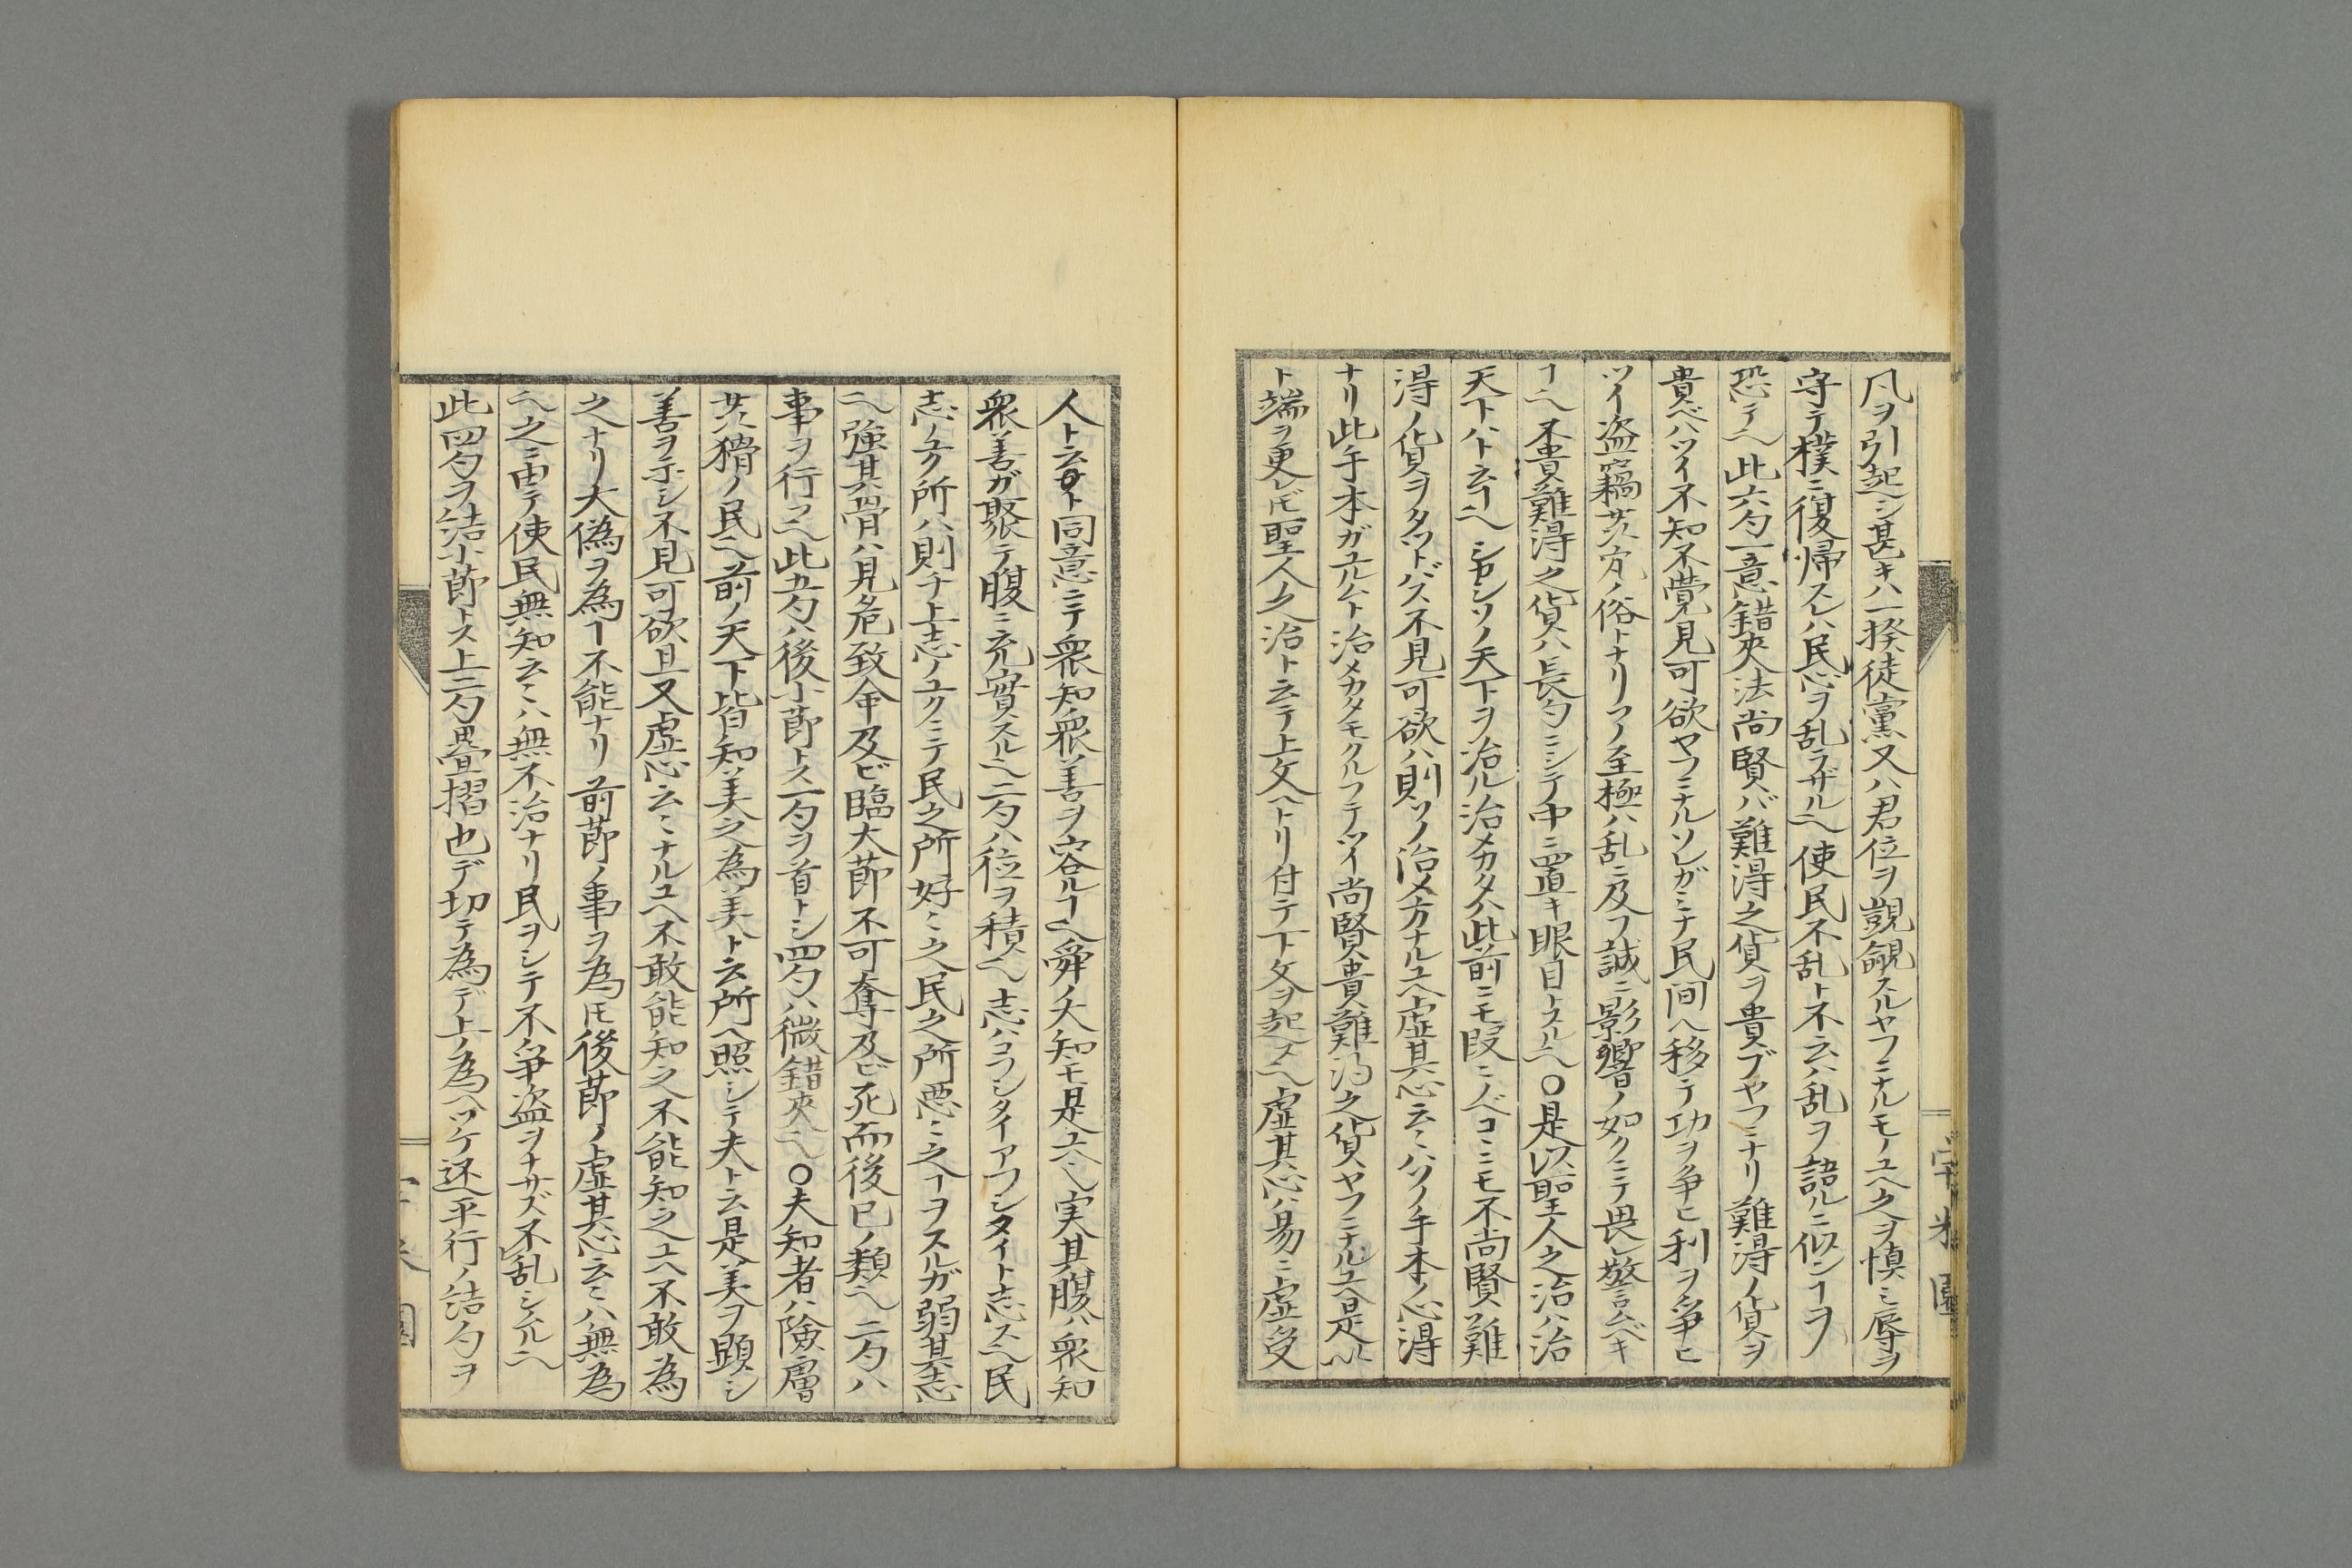 凡ヲ引起シ甚キハ一揆徒黨又ハ君位ヲ覬覦スルヤフニナルモノユヘ之ヲ慎ミ辱ヲ
守テ樸ニ復帰スレハ民心ヲ乱ラザル也使民不乱ト不云ハ乱ヲ語ルニ似ンヿヲ
恐テ也此六句一意錯夾法尚賢バ難得之貨ヲ貴ブヤフニナリ難得ノ貨ヲ
貴ベハツイ不知不覺見可欲ヤフニナルソレガミナ民間ヘ移テ功ヲ争ヒ利ヲ爭ヒ
ツイ盗竊姧宄ノ俗トナリソノ至極ハ乱ニ及フ誠ニ影響ノ如クニテ畏レ警ムベキ
ヿ也不貴難得之貨ハ長句ニシテ中ニ置キ眼目トスル也〇是以聖人之治ハ治
天下ハト云ヿ也シカシソノ天下ヲ治ル治メカタハ此前ニモ段ニノベコミモ不尚賢難
得ノ貨ヲタットバス不見可欲ハ則ソノ治メ方ナルユヘ虚其心云ミハソノ手本ノ心得
ナリ此手本ガユルムト治メカタモクルフテツイ尚賢貴難得之貨ヤフニナルユヘ是以
ト端ヲ更レ𪜈聖人之治ト云テ上文ヘトリ付テ下文ヲ起メ也虚其心ハ易ニ虚受
人ト云ト同意ニテ衆知衆善ヲ容ルヿ也舜ノ大知モ是ユヘ也実其腹ハ衆知
衆善ガ聚テ腹ニ充實スル也二句ハ位ヲ積也志ハコフシタイアフシタイト志ス也民
志ノユク所ハ則チ上志ノユクニテ民之所好ミ之民之所悪ミ之ヿヲスルガ弱其志
也強其骨ハ見危致命及ビ臨大莭不可奪及ビ死而後已ノ類也二句ハ
事ヲ行フ也此五句ハ後小莭トス一句ヲ首トシ四句ハ微錯夾也〇夫知者ハ険膚
姧猾ノ民也前ノ天下皆知美之為美ト云所ヘ照シテ夫ト云是美ヲ顕シ
善ヲ示シ不見可欲且又虚心云ミナルユヘ不敢能知之不能知之ユヘ不敢為
之ナリ大偽ヲ為ヿ不能ナリ前莭ノ事ヲ為𪜈後莭ノ虚其心云ミハ無為
也之ニ由テ使民無知云ミハ無不治ナリ民ヲシテ不爭盗ヲナサズ不乱シムル也
此四句ヲ結小莭トス上二句畳摺也デ切テ為デ上ノ為ヘツケ还平行ノ結句ヲ